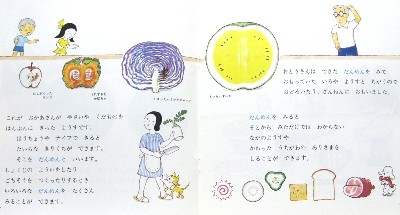 これが おかあさんが やさいや くだものを
はんぶんに きった ようすです。
ほうちょうや ナイフで きると
たいらな きりくちが できます。
そこを だんめんと いいます。
しょくじの よういをしたり
ごちそうを つくったりするとき
いろいろな だんめんを たくさん
みることが できます。
おとうさんは できた だんめんを みて
おもっていた いろや ようすと ちがうので
おどろいたり、ざんねんに おもいました。
だんめんを みると
そとから みただけでは わからない
なかのようすや
かわった うちがわの ありさまを
しることが できます。